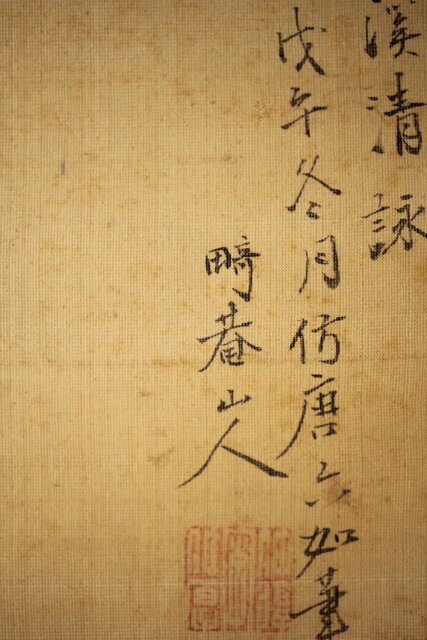 溪清詠
戊午冬月仿唐六如畫
畸菴山人